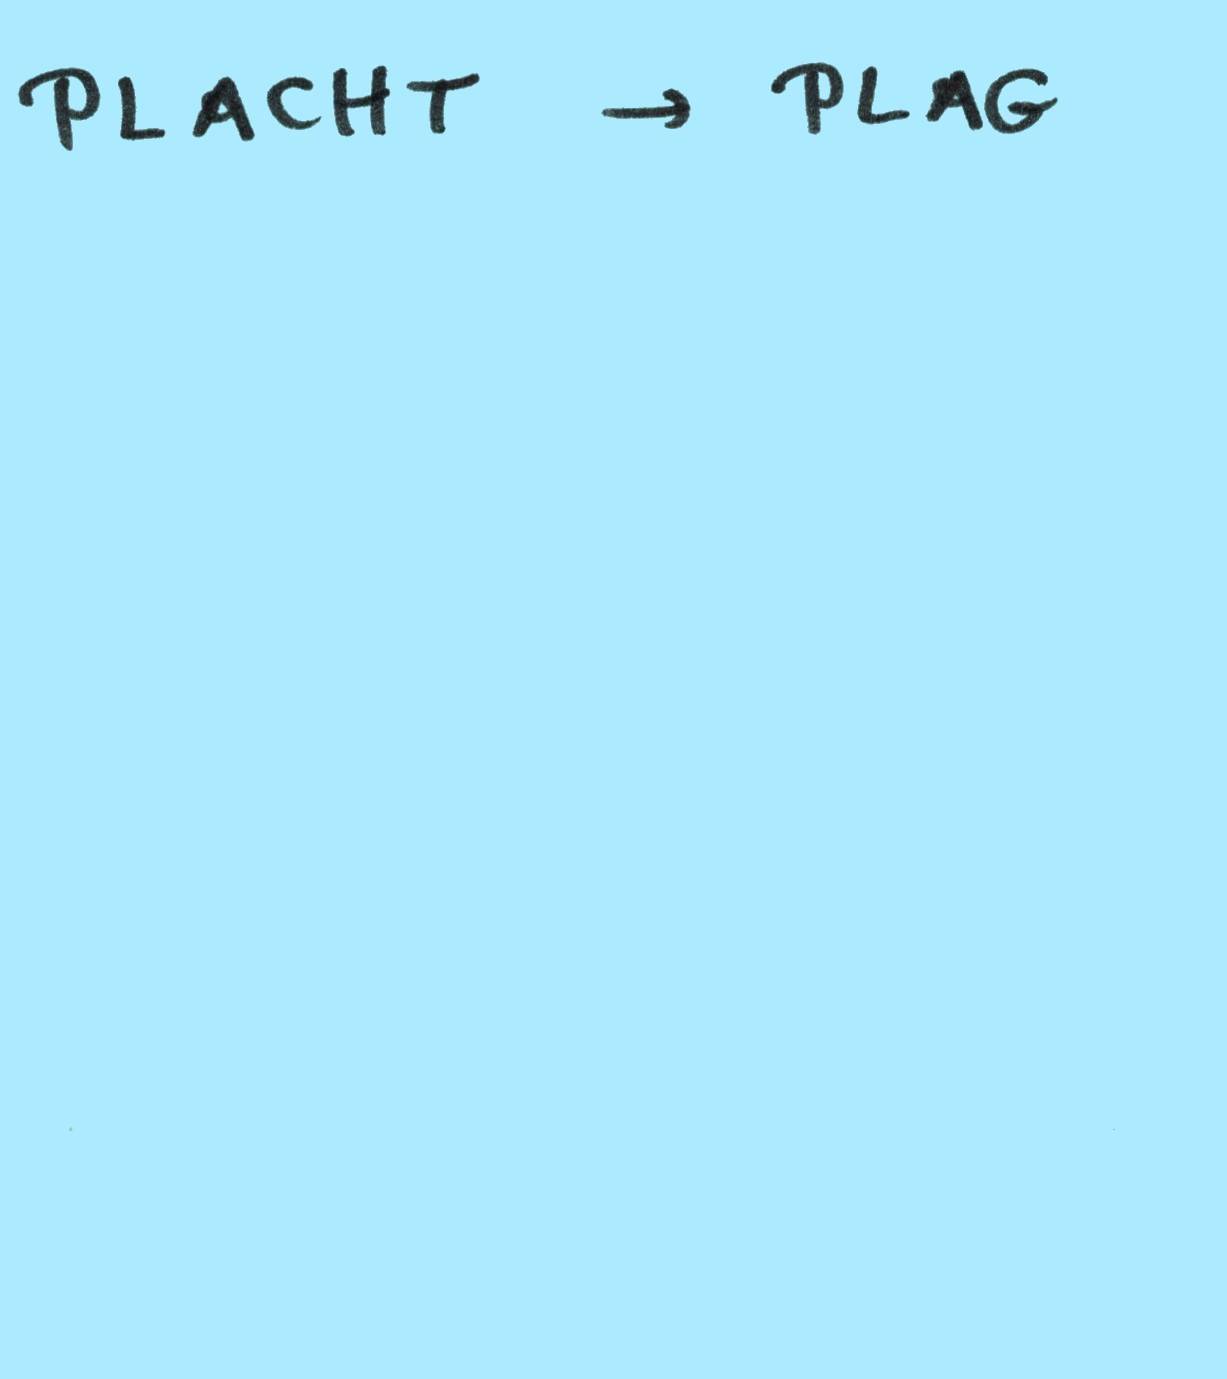 PLACHT → PLAG